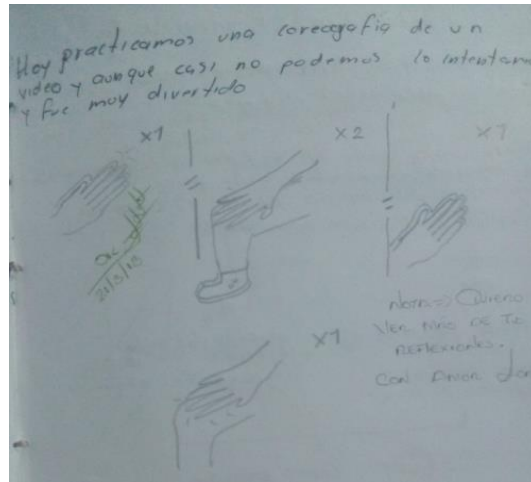 Hoy practicamos una coreografia de un
video y aunque casi no podemos lo intentam
y fue muy divertido
x1
x2
x1
21/3/13
Nota => Quiero
Ver más DE TU
REFLEXIONES.
x1
Con Amor